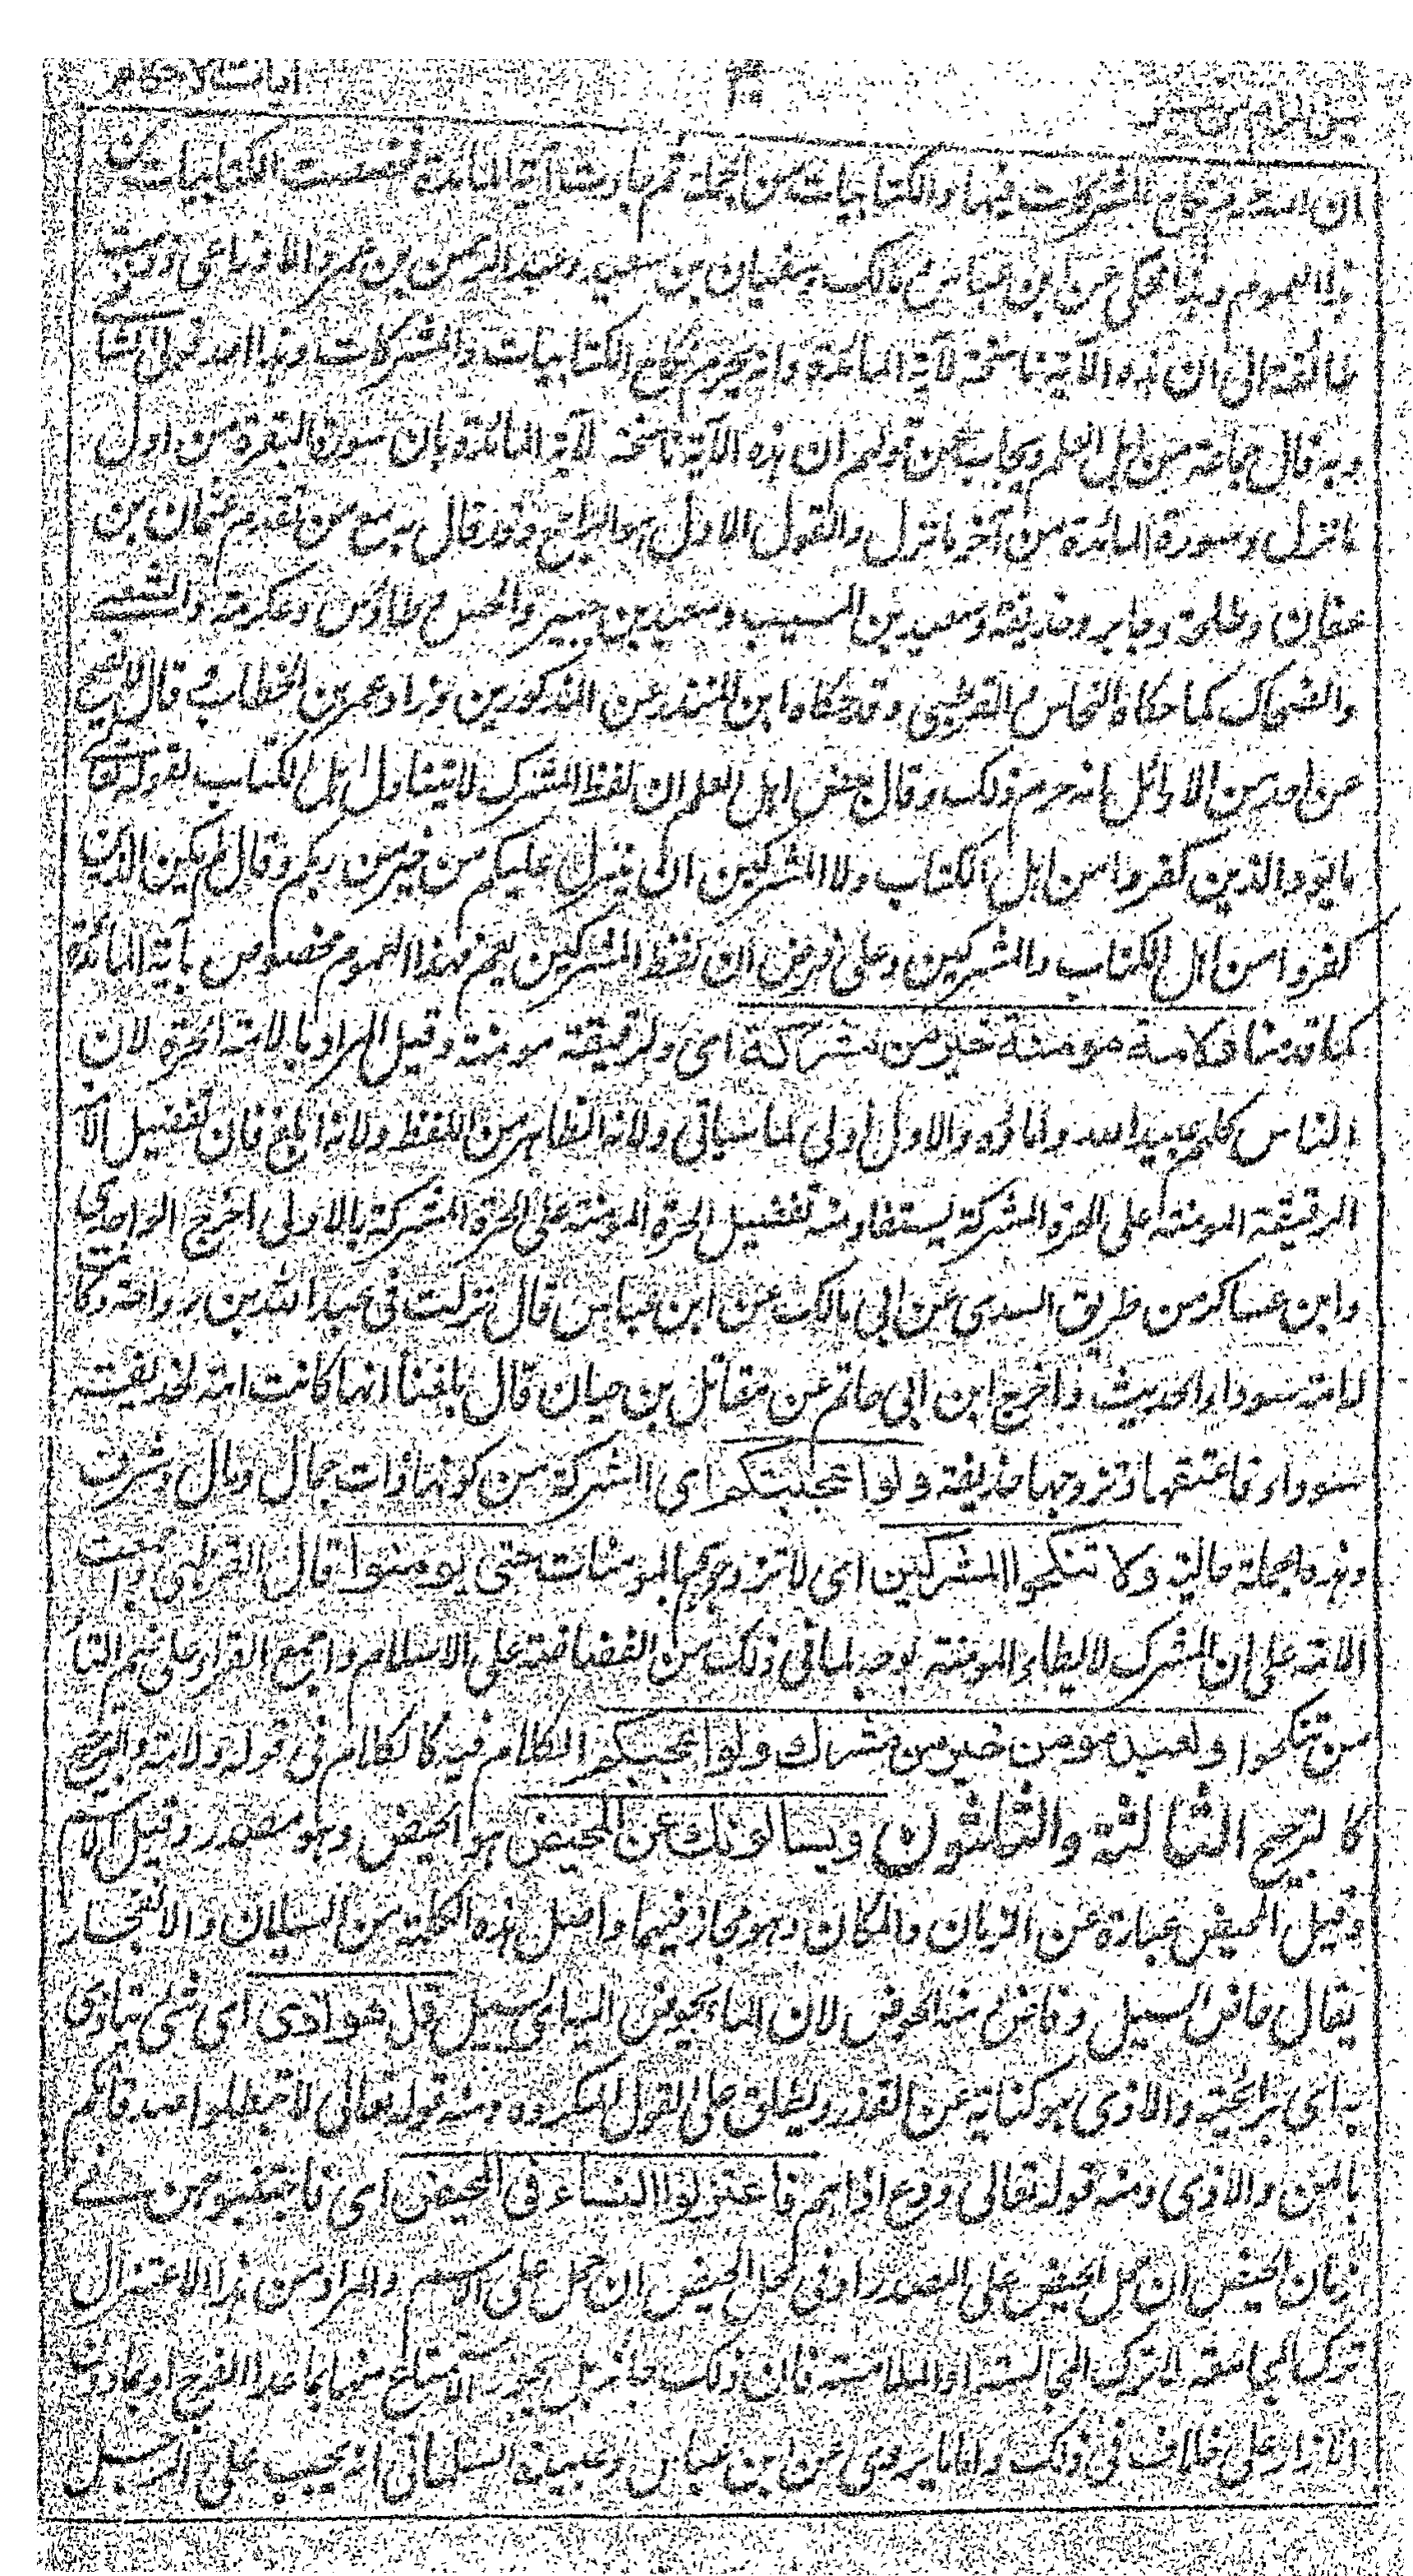 آيات الاحكام
نيل المرام من تفسير
ان الله حرم نكاح المشركات فيها والكتابيات من الجملة ثم جاءت آية المائدة فخصصت الكتابيات من
هذا العموم وهذا محكي عن ابن عباس ومالك وسفيان بن سعيد وعبد الرحمن بن عمر والاوزاعي وذهب
طائفة الى ان هذه الآية ناسخة لآية المائدة وانه يحرم نكاح الكتابيات والمشركات وهذا احد قولي الشا
وبه قال جماعة من اهل العلم ويجاب عن قولهم ان هذه الآية ناسخة لآية المائدة بان سورة البقرة من اول
ما نزل وسورة المائدة من آخر ما نزل والقول الاول هو الراجح وقد قال به مع من تقدم عثمان بن
عفان وطلحة وجابر وحذيفة وسعيد بن المسيب وسعيد بن جبير والحسن وطاؤس وعكرمة والشعبي
والضحاك كما حكاه النحاس والقرطبي وقد حكاه ابن المنذر عن المذكورين وزاد عمر بن الخطاب وقال لا يصح
عن احد من الاوائل انه حرم ذلك وقال بعض اهل العلم ان لفظ المشرك لا يتناول اهل الكتاب لقوله تعا
ما يود الذين كفروا من اهل الكتاب ولا المشركين ان ينزل عليكم من خير من ربكم وقال لم يكن الذين
كفروا من اهل الكتاب والمشركين وعلى فرض ان لفظ المشركين يعم فهذا العموم مخصوص بآية المائدة
كما قدمنا ولامة مومنة خير من مشركة اى ولرقيقة مومنة وقيل المراد بالامة الحرة لان
الناس كلهم عبيد الله واماؤه والاول اولى لما سياتي ولانه الظاهر من اللفظ ولانه ابلغ فان تفضيل الا
الرقيقة المومنة على الحرة المشركة يستفاد منه تفضيل الحرة المومنة على الحرة المشركة بالاولى اخرج الواحدي
وابن عساكر من طريق السدي عن ابي مالك عن ابن عباس قال نزلت في عبد الله بن رواحة وكا
لامة سوداء الحديث واخرج ابن ابي حاتم عن مقاتل بن حيان قال بلغنا انها كانت امة لحذيفة
سوداء فاعتقها وتزوجها حذيفة ولو اعجبتكم اى المشركة من كونها ذات جمال ومال وشرف
وهذه الجملة حالية ولا تنكحوا المشركين اى لا تزوجوهم بالمومنات حتى يومنوا قال القرطبي اجمعت
الامة على ان المشرك لا يطاء المومنة بوجه لما في ذلك من الغضاضة على الاسلام واجمع القراء على ضم التا
من تنكحوا ولعبد مومن خير من مشرك ولو اعجبكم الكلام فيه كالكلام في قوله ولامة والترجيح
كالترجيح الثالثة والثلاثون ويسالونك عن المحيض هو الحيض وهو مصدر وقيل الاسم
وقيل المحيض عبارة عن الزمان والمكان وهو مجاز فيهما واصل هذه الكلمة من السيلان والانفجار
يقال حاض السيل وفاض ومنه الحوض لان الماء يحوض اليه اى يسيل قل هو اذى اى شئ يتاذى
به اى برائحته والاذى هو كناية عن القذر ويطلق على القول المكروه ومنه قوله تعالى لا تبطلوا صدقاتكم
بالمن والاذى ومنه قوله تعالى ودع اذاهم فاعتزلوا النساء في المحيض اى فاجتنبوهن في
زمان الحيض ان حمل المحيض على المصدر او في محل الحيض ان حمل على الاسم والمراد من هذا الاعتزال
ترك المجامعة لا ترك المجالسة او الملامسة فان ذلك جائز بل يجوز الاستمتاع منها بما عدا الفرج او بما دون
الازار على خلاف في ذلك واما ما يروى عن ابن عباس وعبيدة السلماني انه يجب على الرجل